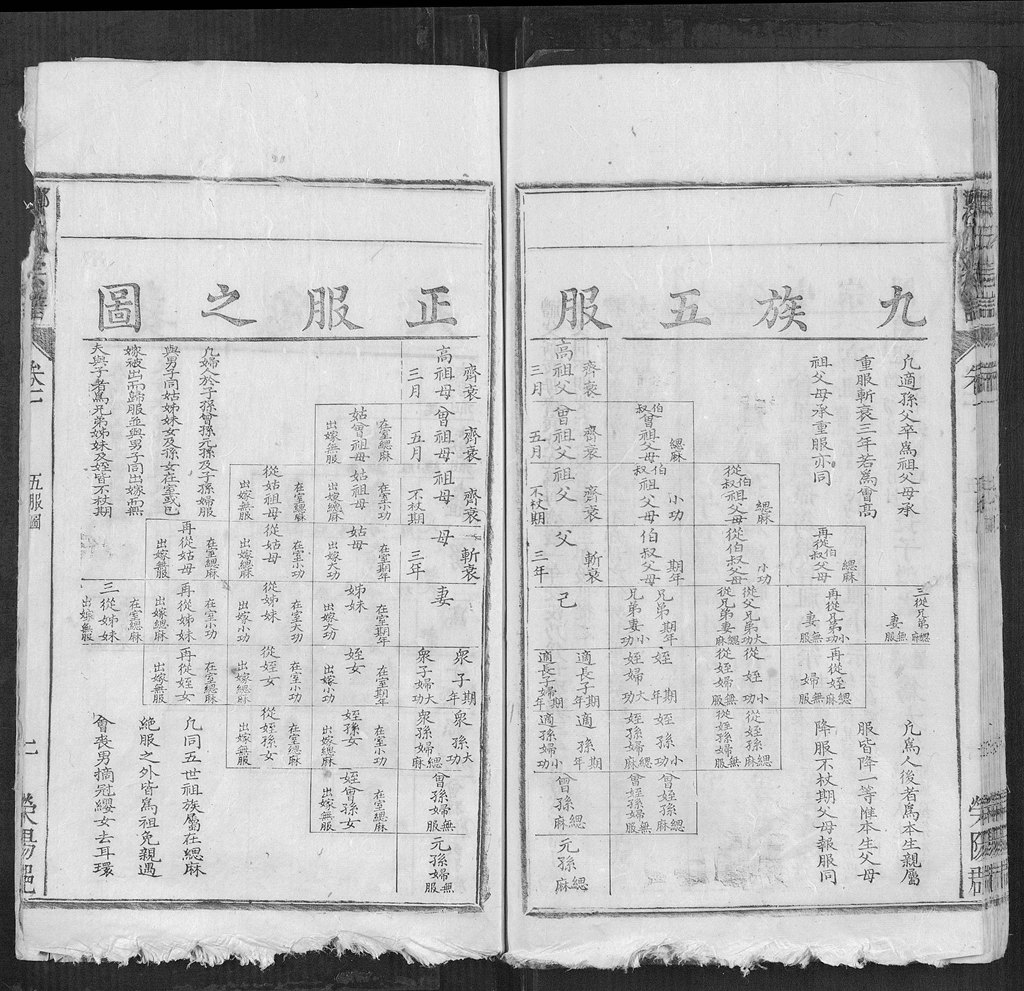 九族五服
正服之圖
凢適孫父卒爲祖父母承
重服斬衰三年若爲曾高
祖父母承重服亦同
凢爲人後者爲本生親屬
服皆降一等惟本生父母
降服不杖期父母報服同
三從兄弟緦麻
妻無服
再從伯叔父母
緦麻
再從兄弟小功
妻無服
再從姪緦麻
婦無服
從伯叔祖父母
緦麻
從伯叔父母
小功
從父兄弟大功
從兄弟妻緦麻
從姪小功
從姪婦無服
從姪孫緦麻
從姪孫婦無服
伯叔曾祖父母
緦麻
伯叔祖父母
小功
伯叔父母
期年
兄弟期年
兄弟妻小功
姪期年
姪婦大功
姪孫小功
姪孫婦緦麻
曾姪孫緦麻
曾姪孫婦無服
齊衰
高祖父
三月
齊衰
曾祖父
五月
齊衰
祖父
不杖期
斬衰
父
三年
己
適長子期年
適長子婦期年
適孫期年
適孫婦小功
曾孫緦麻
元孫緦麻
齊衰
高祖母
三月
齊衰
曾祖母
五月
齊衰
祖母
不杖期
斬衰
母
三年
妻
衆子期年
衆子婦大功
衆孫大功
衆孫婦緦麻
曾孫婦無服
元孫婦無服
在室緦麻
姑曾祖母
出嫁無服
在室小功
姑祖母
出嫁緦麻
在室期年
姑母
出嫁大功
在室期年
姊妹
出嫁大功
在室期年
姪女
出嫁小功
在室小功
姪孫女
出嫁緦麻
在室緦麻
姪曾孫女
出嫁無服
在室緦麻
從姑祖母
出嫁無服
在室小功
從姑母
出嫁緦麻
在室大功
從姊妹
出嫁小功
在室小功
從姪女
出嫁緦麻
在室緦麻
從姪孫女
出嫁無服
在室緦麻
再從姑母
出嫁無服
在室小功
再從姊妹
出嫁緦麻
在室緦麻
再從姪女
出嫁無服
在室緦麻
三從姊妹
出嫁無服
凢婦人於子孫曾孫元孫及子孫婦服
與男子同姑姊妹女及孫女在室或已
嫁被出而歸服並與男子同出嫁而無
夫與子者爲兄弟姊妹及姪皆不杖期
凢同五世祖族屬在緦麻
絶服之外皆爲祖免親遇
會喪男摘冠纓女去耳環
五服圖
二